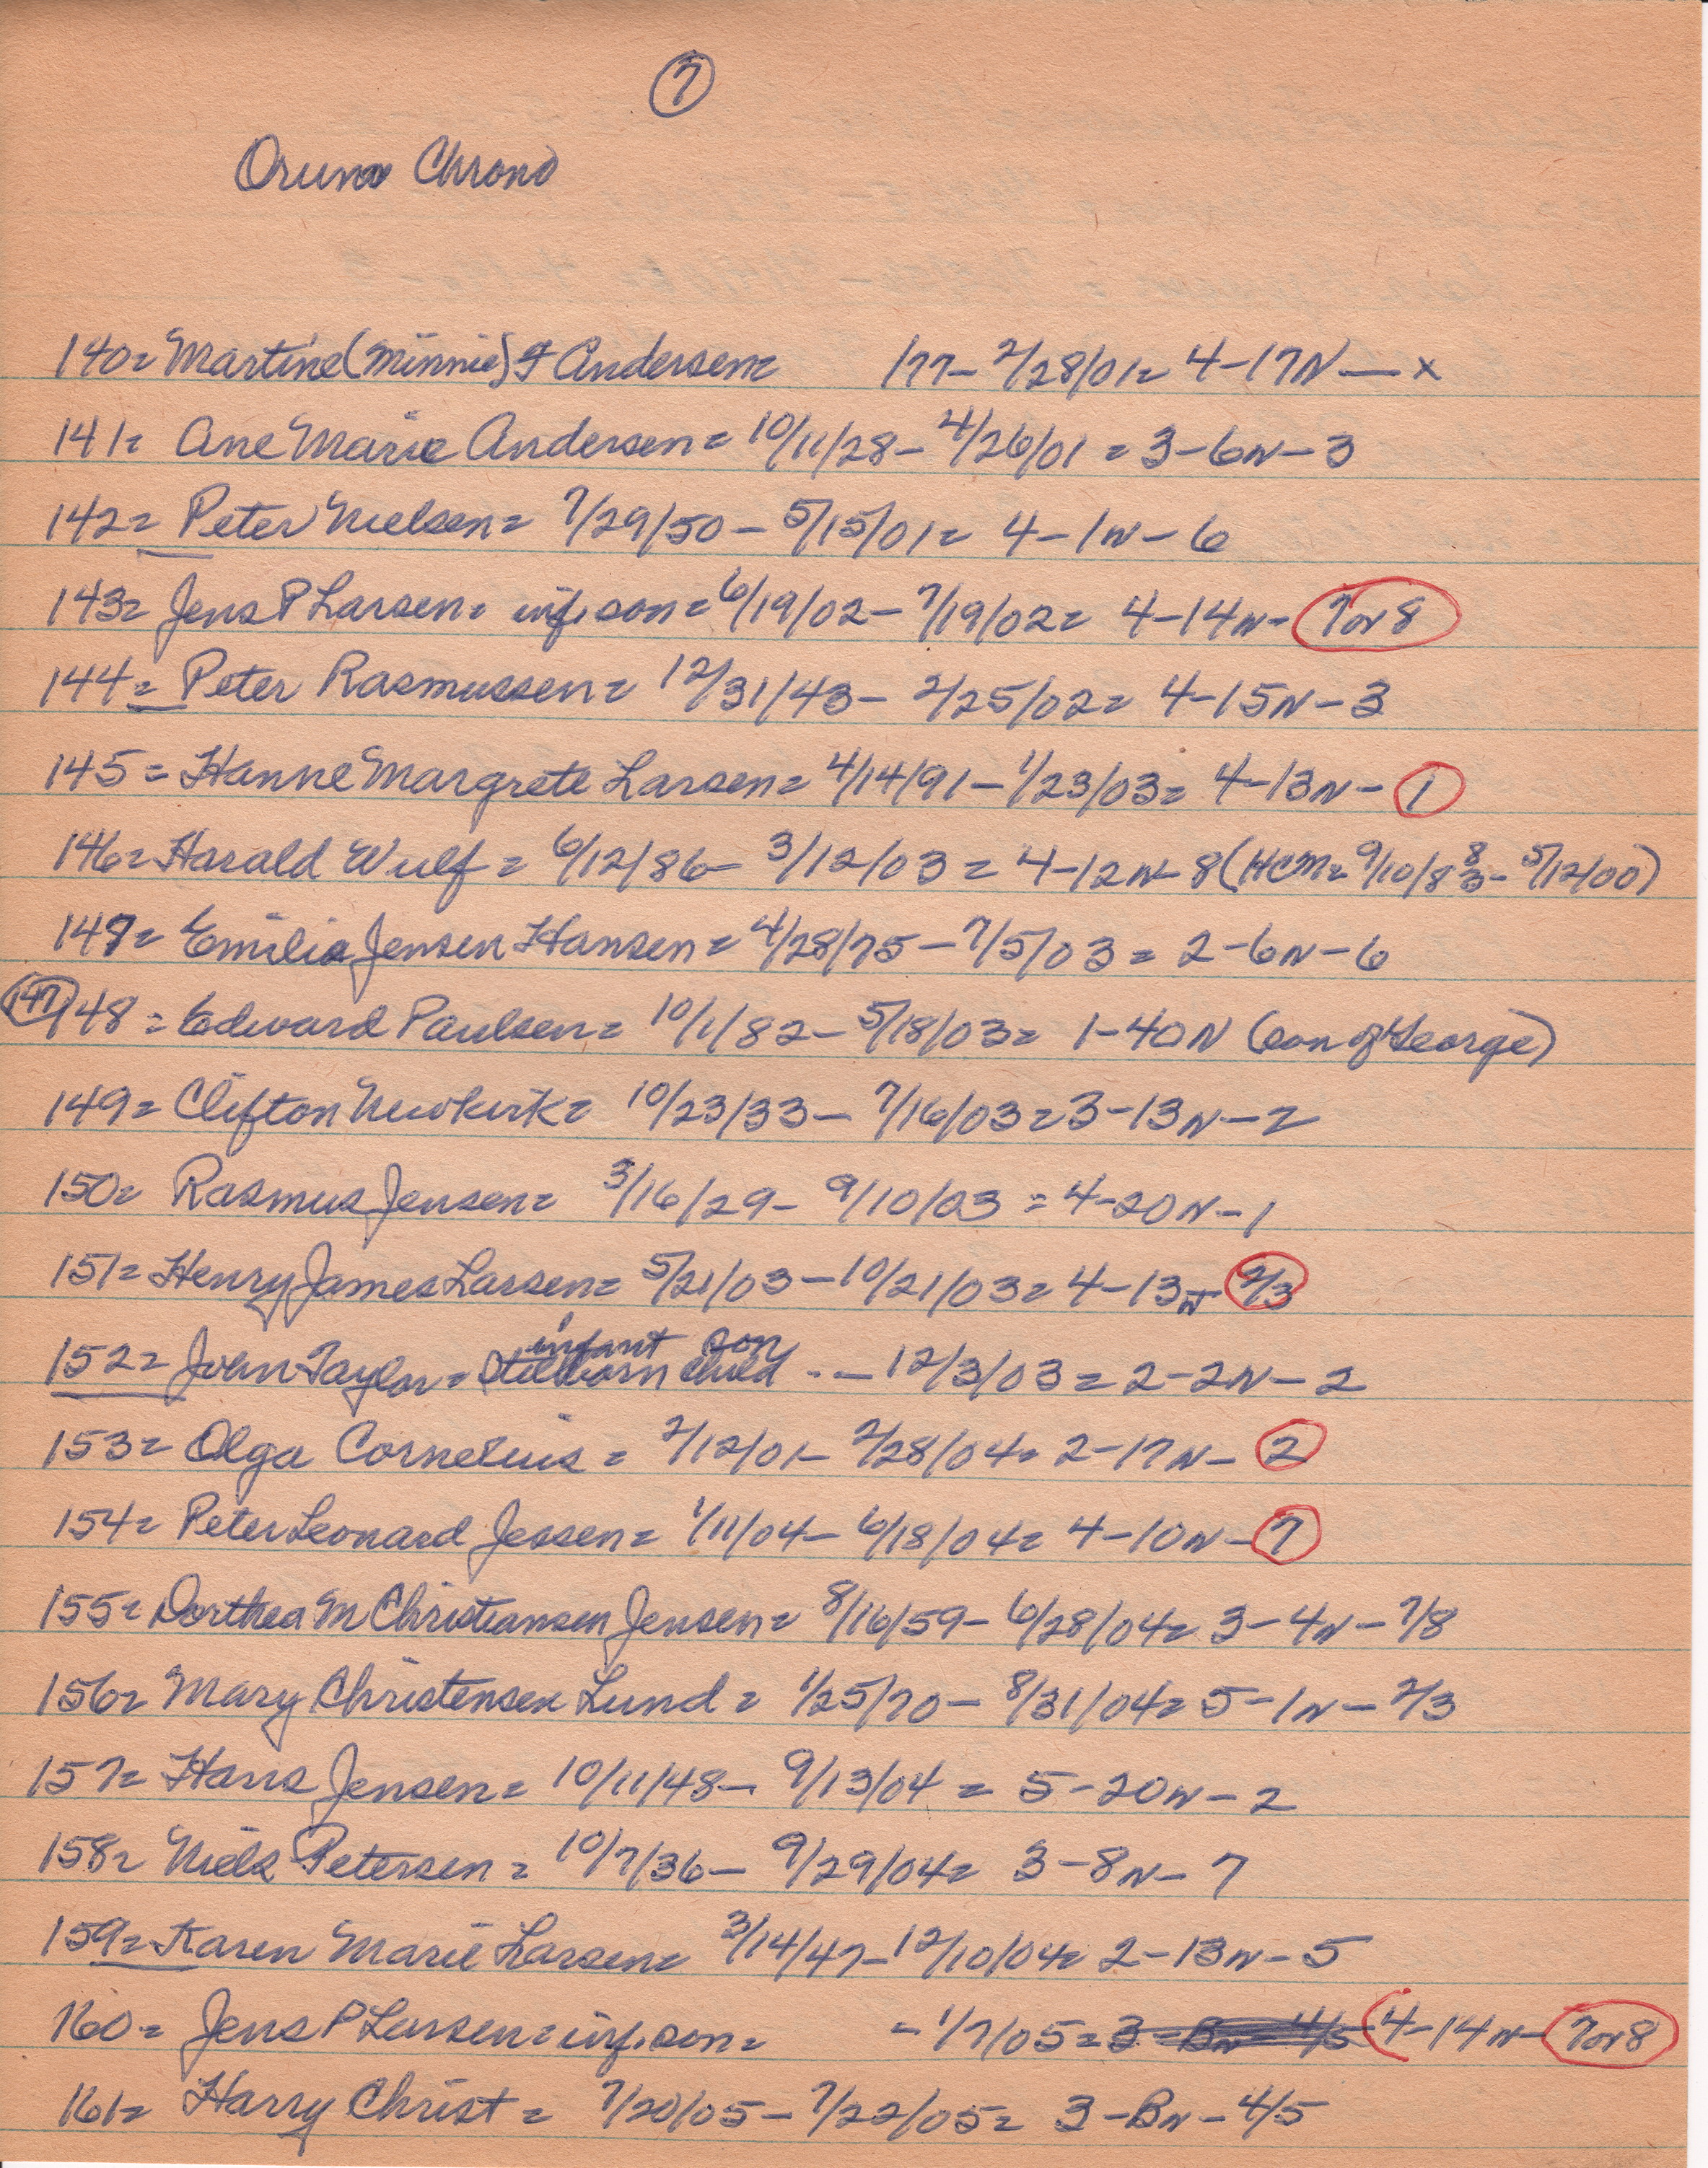 7
Oruna Chrono
140= Martine (Minnie) F Andersen= 177- 2/28/01= 4-17N — x
141= Ane Marie Andersen= 10/11/28- 4/26/01 = 3-6N-3
142= Peter Nielsen= 7/29/50 - 5/15/01= 4-1N-6
143= Jens P Larsen= inf. son= 6/19/02- 7/19/02= 4-14N- 7or8
144= Peter Rasmussen= 12/31/43- 2/25/02= 4-15N-3
145= Hanne Margrete Larsen= 4/14/91- 1/23/03= 4-13N- 1
146= Harald Wulf = 6/12/86- 3/12/03 = 4-12N-8 (HCM= 9/10/83 8 - 5/12/00)
147= Emilia Jensen Hansen= 4/28/75-7/5/03 = 2-6N-6
147 148 = Edward Paulsen= 10/1/82- 5/18/03= 1-40N (son of George)
149= Clifton Newkirk= 10/23/33- 7/16/03=3-13N-2
150= Rasmus Jensen= 3/16/29- 9/10/03 = 4-20N-1
151= Henry James Larsen= 5/21/03-10/21/03= 4-13N- 2/3
infant son
152= John Taylor= Stillborn Child -- — 12/3/03 = 2-2N-2
153= Olga Cornelius = 2/12/01- 2/28/04= 2-17N- 2
154= Peter Leonard Jessen= 1/11/04- 6/18/04= 4-10N- 7
155= Dorthea M Christiansen Jensen= 8/16/59- 6/28/04= 3-4N-7/8
156= Mary Christensen Lund = 1/25/70- 8/31/04= 5-1N-2/3
157= Hans Jensen= 10/11/48- 9/13/04 = 5-20N-2
158= Niels Petersen= 10/7/36- 9/29/04= 3-8N-7
159= Karen Marie Larsen= 3/14/47-12/10/04= 2-13N-5
160= Jens P Larsen= inf. son= -1/7/05= 3-BN-4/5 (4-14N- 7or8
161= Harry Christ = 7/20/05- 7/22/05= 3-BN-4/5